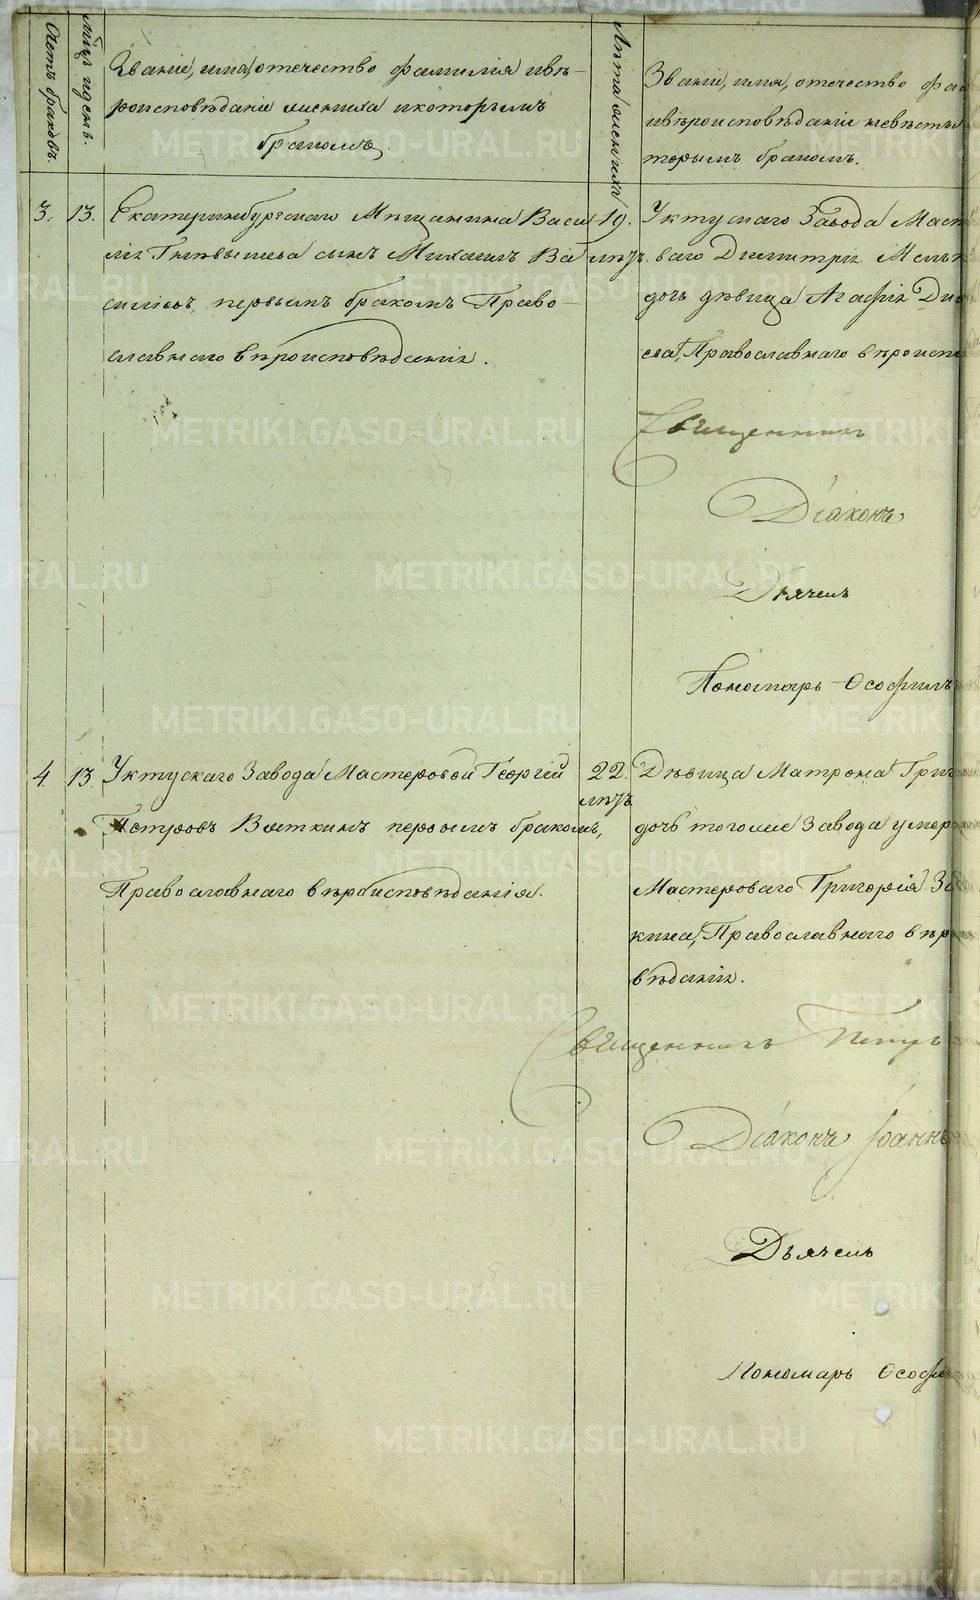 Счетъ браковъ.
Мѣсяцъ и день.
Званіе, имя, отечество фамилія и вѣ-
роисповѣданіе жениха и которымъ
бракомъ.
Лѣта жениха
Званіе, имя, отечество фа
и вѣроисповѣданіе невѣсты
торымъ бракомъ.
3. 13. Екатеринбургскаго Мѣщанина Васи
лія сынъ Михаилъ Ва
сильевъ, первымъ бракомъ Право-
славнаго вѣроисповѣданія.
19.
лѣтъ.
Уктускаго Завода Маст
ваго Димитрія
дочь дѣвица Агафія Ди
ева, Православнаго вѣроисп
Священникъ
Діаконъ
Дьячекъ
Пономарь Ѳеофилъ
4. 13. Уктускаго Завода Мастеровой Георгій
Петровъ Вяткинъ первымъ бракомъ,
Православнаго вѣроисповѣданія.
22.
лѣтъ
Дѣвица Матрона Григ
дочь тогоже Завода умер
Мастероваго Григорія
кина, Православнаго вѣро
вѣданія.
Священникъ Петръ
Діаконъ Іоаннъ
Дьячекъ
Пономарь Ѳеофи
METRIKI.GASO-URAL.RU